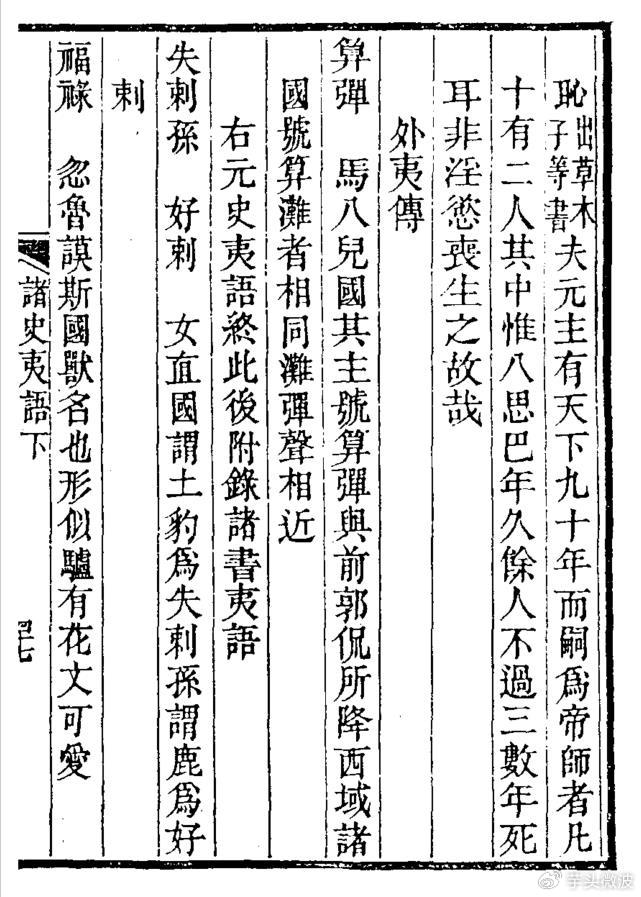 恥出草木子等書夫元主有天下九十年而嗣爲帝師者凡
十有二人其中惟八思巴年久餘人不過三數年死
耳非淫慾喪生之故哉
外夷傳
算彈　馬八兒國其主號算彈與前郭侃所降西域諸
國號算灘者相同灘彈聲相近
右元史夷語終此後附錄諸書夷語
失剌孫　好剌　女直國謂土豹爲失剌孫謂鹿爲好
剌
福祿　忽魯謨斯國獸名也形似驢有花文可愛
諸史夷語下
@芋头微波